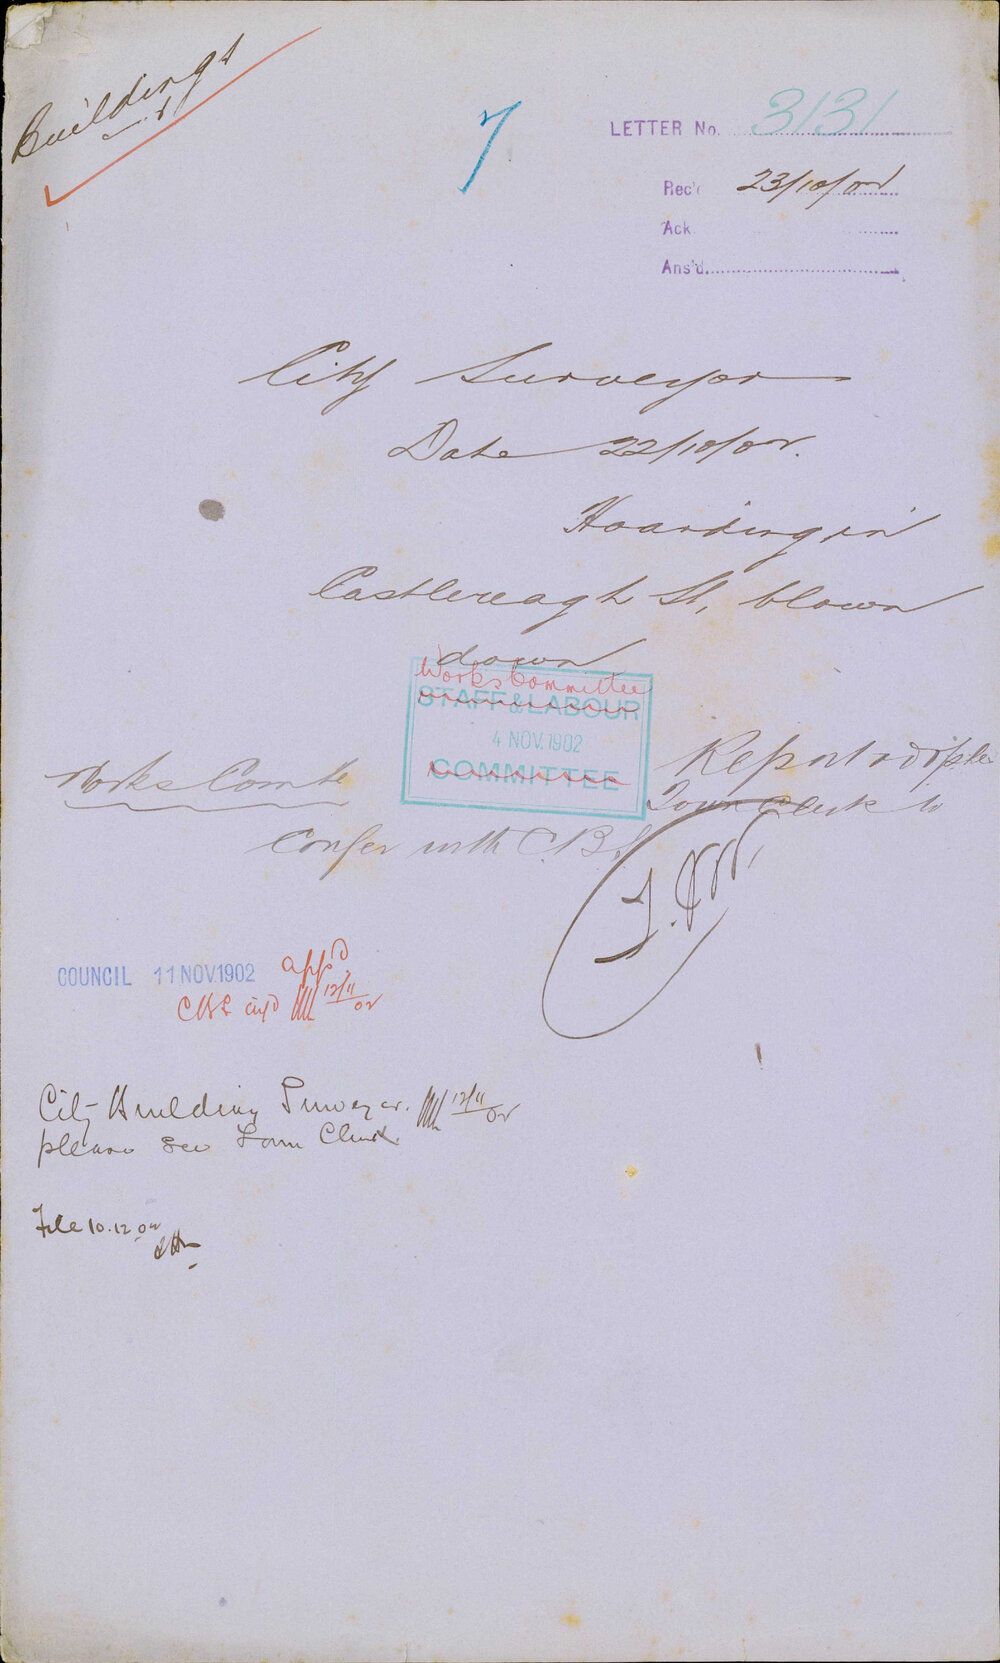 Buildings
7
LETTER No. 3131
Rec'd 23/10/02
Ack
Ans'd
City Surveyor
Date 22/10/02.
Hoarding in
Castlereagh St, blown
down
Works Committee
STAFF & LABOUR
4 NOV. 1902
COMMITTEE
Works Comte
Report adopted
Town Clerk to
Confer with C.B.S.
COUNCIL 11 NOV. 1902 appd
CBS 12/11/02
City Building Surveyor. 12/11/02
please see Town Clerk.
File 10.12.02